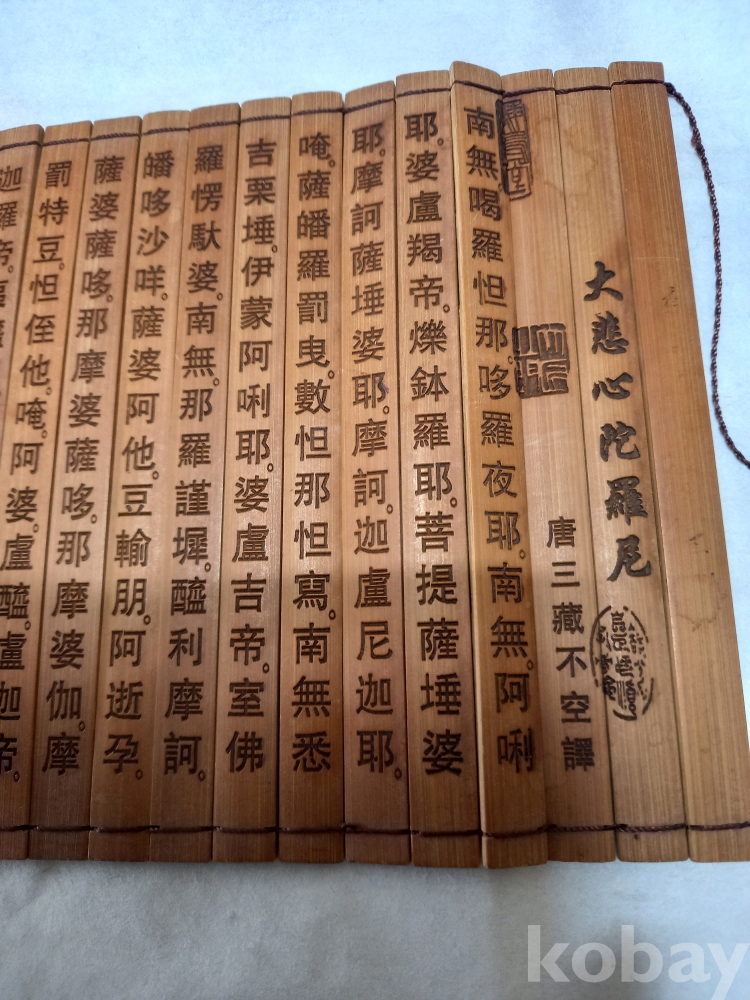 大悲心陀羅尼
唐三藏不空譯
南無。喝羅怛那。哆羅夜耶。南無。阿唎
耶。婆盧羯帝。爍鉢羅耶。菩提薩埵婆
耶。摩訶薩埵婆耶。摩訶。迦盧尼迦耶。
唵。薩皤羅罰曳。數怛那怛寫。南無悉
吉栗埵。伊蒙阿唎耶。婆盧吉帝。室佛
羅愣馱婆。南無。那羅謹墀。醯利摩訶。
皤哆沙咩。薩婆阿他。豆輸朋。阿逝孕。
薩婆薩哆。那摩婆薩哆。那摩婆伽。摩
罰特豆。怛侄他。唵。阿婆盧醯。盧
迦羅帝。迦帝。
kobay